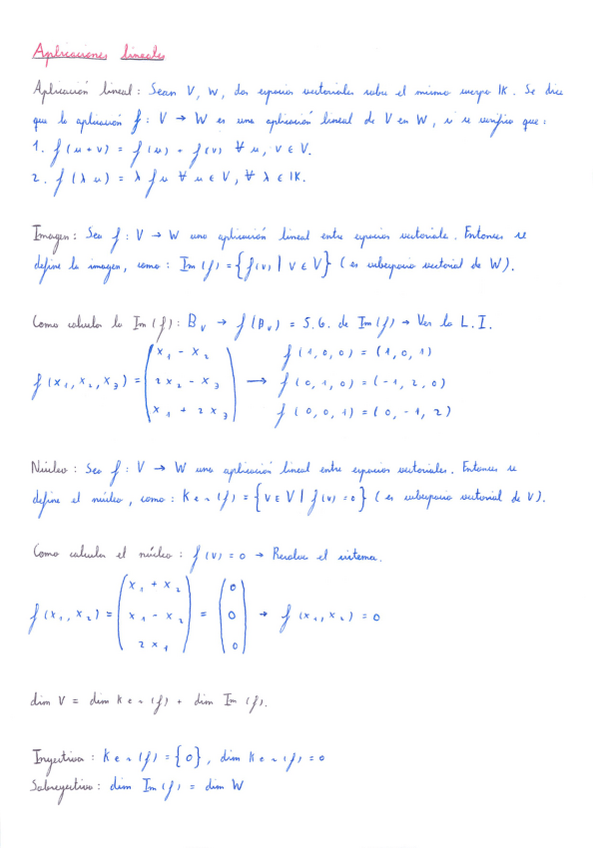 Aplicaciones lineales
Aplicación lineal: Sean V, W, dos espacios vectoriales sobre el mismo cuerpo IK. Se dice
que la aplicación f: V → W es una aplicación lineal de V en W, si se verifica que:
1. f(u+v) = f(u) + f(v) ∀ u, v ∈ V.
2. f(λu) = λ f u ∀ u ∈ V, ∀ λ ∈ IK.
Imagen: Sea f: V → W una aplicación lineal entre espacios vectoriales. Entonces se
define la imagen, como: Im(f) = {f(v) | v ∈ V} (es subespacio vectorial de W).
Como calcular la Im(f): B_V → f(B_V) = S.G. de Im(f) → Ver la L.I.
x₁ - x₂ f(1,0,0) = (1,0,1)
f(x₁, x₂, x₃) = 2x₂ - x₃ → f(0,1,0) = (-1,2,0)
x₁ + 2x₃ f(0,0,1) = (0,-1,2)
Núcleo: Sea f: V → W una aplicación lineal entre espacios vectoriales. Entonces se
define el núcleo, como: Ker(f) = {v ∈ V | f(v) = 0} (es subespacio vectorial de V).
Como calcular el núcleo: f(v) = 0 → Resolver el sistema.
x₁ + x₂ 0
f(x₁, x₂) = x₁ - x₂ = 0 → f(x₁, x₂) = 0
2x₁ 0
dim V = dim Ker(f) + dim Im(f).
Inyectiva: Ker(f) = {0}, dim Ker(f) = 0
Sobreyectiva: dim Im(f) = dim W